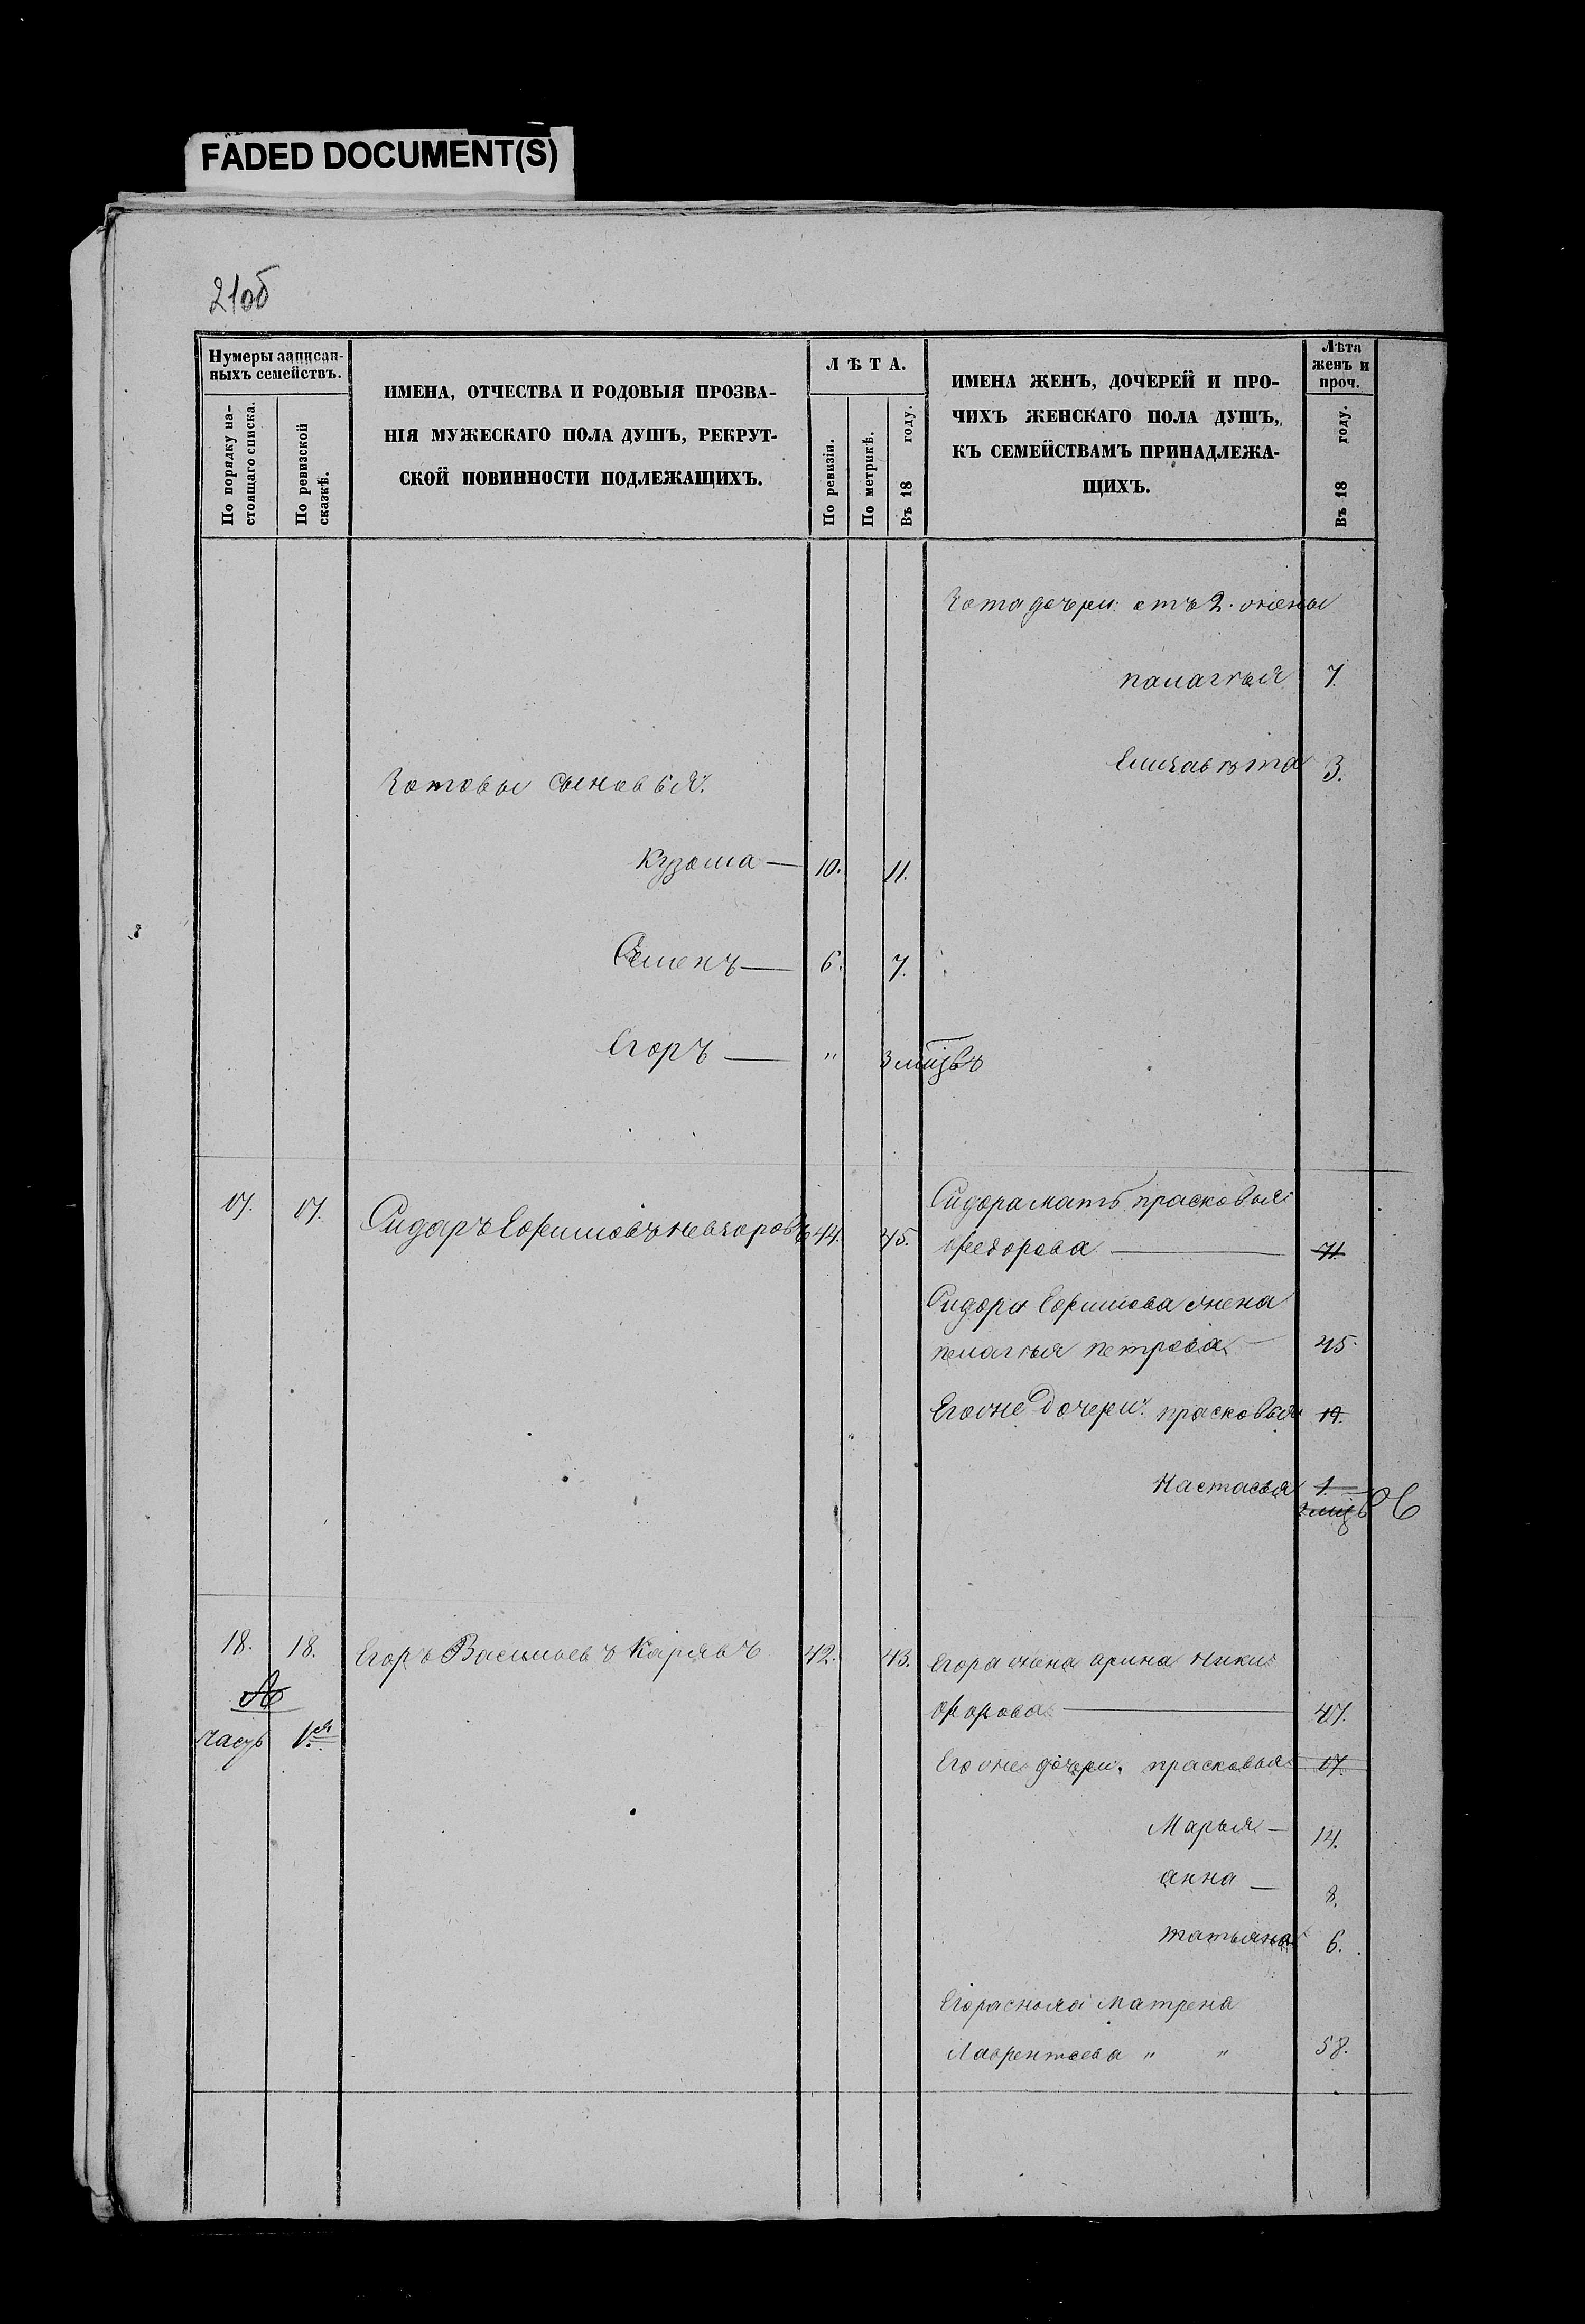 FADED DOCUMENT(S)
21об
Нумеры записан-
ныхъ семействъ.
По порядку на-
стоящаго списка.
По ревизской
сказкѣ.
ИМЕНА, ОТЧЕСТВА И РОДОВЫЯ ПРОЗВА-
НІЯ МУЖЕСКАГО ПОЛА ДУШЪ, РЕКРУТ-
СКОЙ ПОВИННОСТИ ПОДЛЕЖАЩИХЪ.
ЛѢТА.
По ревизіи.
По метрикѣ.
Въ 18 году.
ИМЕНА ЖЕНЪ, ДОЧЕРЕЙ И ПРО-
ЧИХЪ ЖЕНСКАГО ПОЛА ДУШЪ,
КЪ СЕМЕЙСТВАМЪ ПРИНАДЛЕЖА-
ЩИХЪ.
Лѣта
женъ и
проч.
Въ 18 году.
Зота дочери: отъ 2. жены
палагѣя 7.
Елизавѣта 3.
Зотовы сыновья.
Кузома — 10. 11.
Семенъ — 6. 7.
Егоръ — " 3 мцзвъ
17. 17. Сидаръ Ефимовъ 44. 45.
Сидора мать прасковья
федорова — 71.
Сидора Ефимова жена
пелагѣя петрова — 45.
Егоже дочери: прасковья 19.
Настасья 1.
18. 18. Егоръ Васильевъ Карявъ 42. 43.
Егора жена арина ники-
форова — 47.
часть 1я
Егоже дочери. прасковья 17.
Марья — 14.
анна — 8.
татьяна 6.
Егора сноха Матрена
Лаврентьева " " 58.